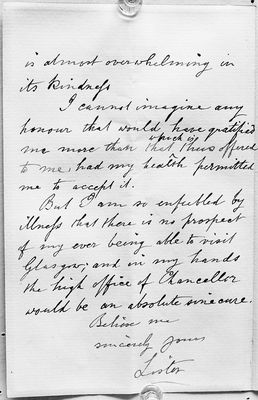 is almost overwhelming in
its kindness
I cannot imagine any
honour that would have gratified
me more than that which is thus offered
to me, had my health permitted
me to accept it.
But I am so enfeebled by
illness that there is no prospect
of my ever being able to visit
Glasgow; and in my hands
the high office of Chancellor
would be an absolute sinecure.
Believe me
sincerely yours
Lister